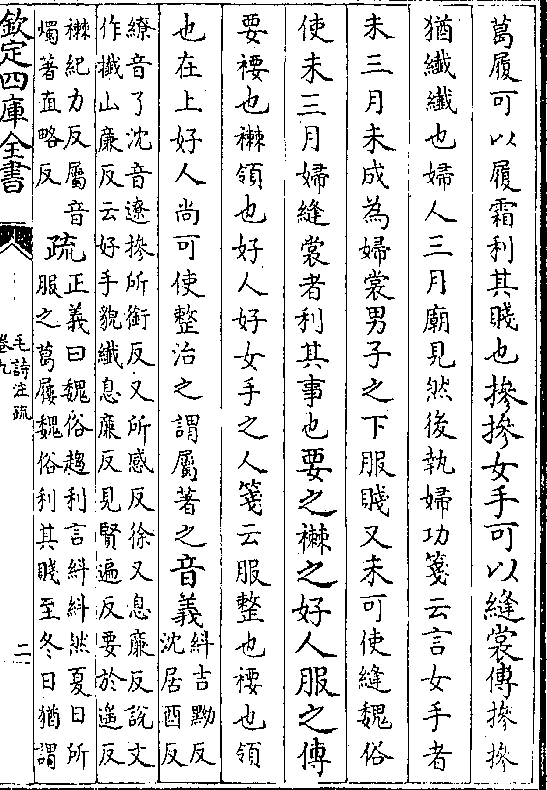 葛屨可以履霜利其賤也摻摻女手可以縫裳傳摻摻
猶纖纖也婦人三月廟見然後執婦功箋云言女手者
未三月未成為婦裳男子之下服賤又未可使縫魏俗
使未三月婦縫裳者利其事也要之襋之好人服之傳
要褄也襋領也好人好女手之人箋云服整也褄也領
也在上好人尚可使整治之謂屬著之音義
糾吉黝反
沈居酉反
繚音了沈音遼摻所銜反又所感反徐又息廉反說文
作攕山廉反云好手貌纖息廉反見賢遍反要於遥反
襋紀力反屬音
燭著直略反
疏
正義曰魏俗趨利言糾糾然夏日所
服之葛屨魏俗利其賤至冬日猶謂
欽定四庫全書
毛詩注疏
卷九
二